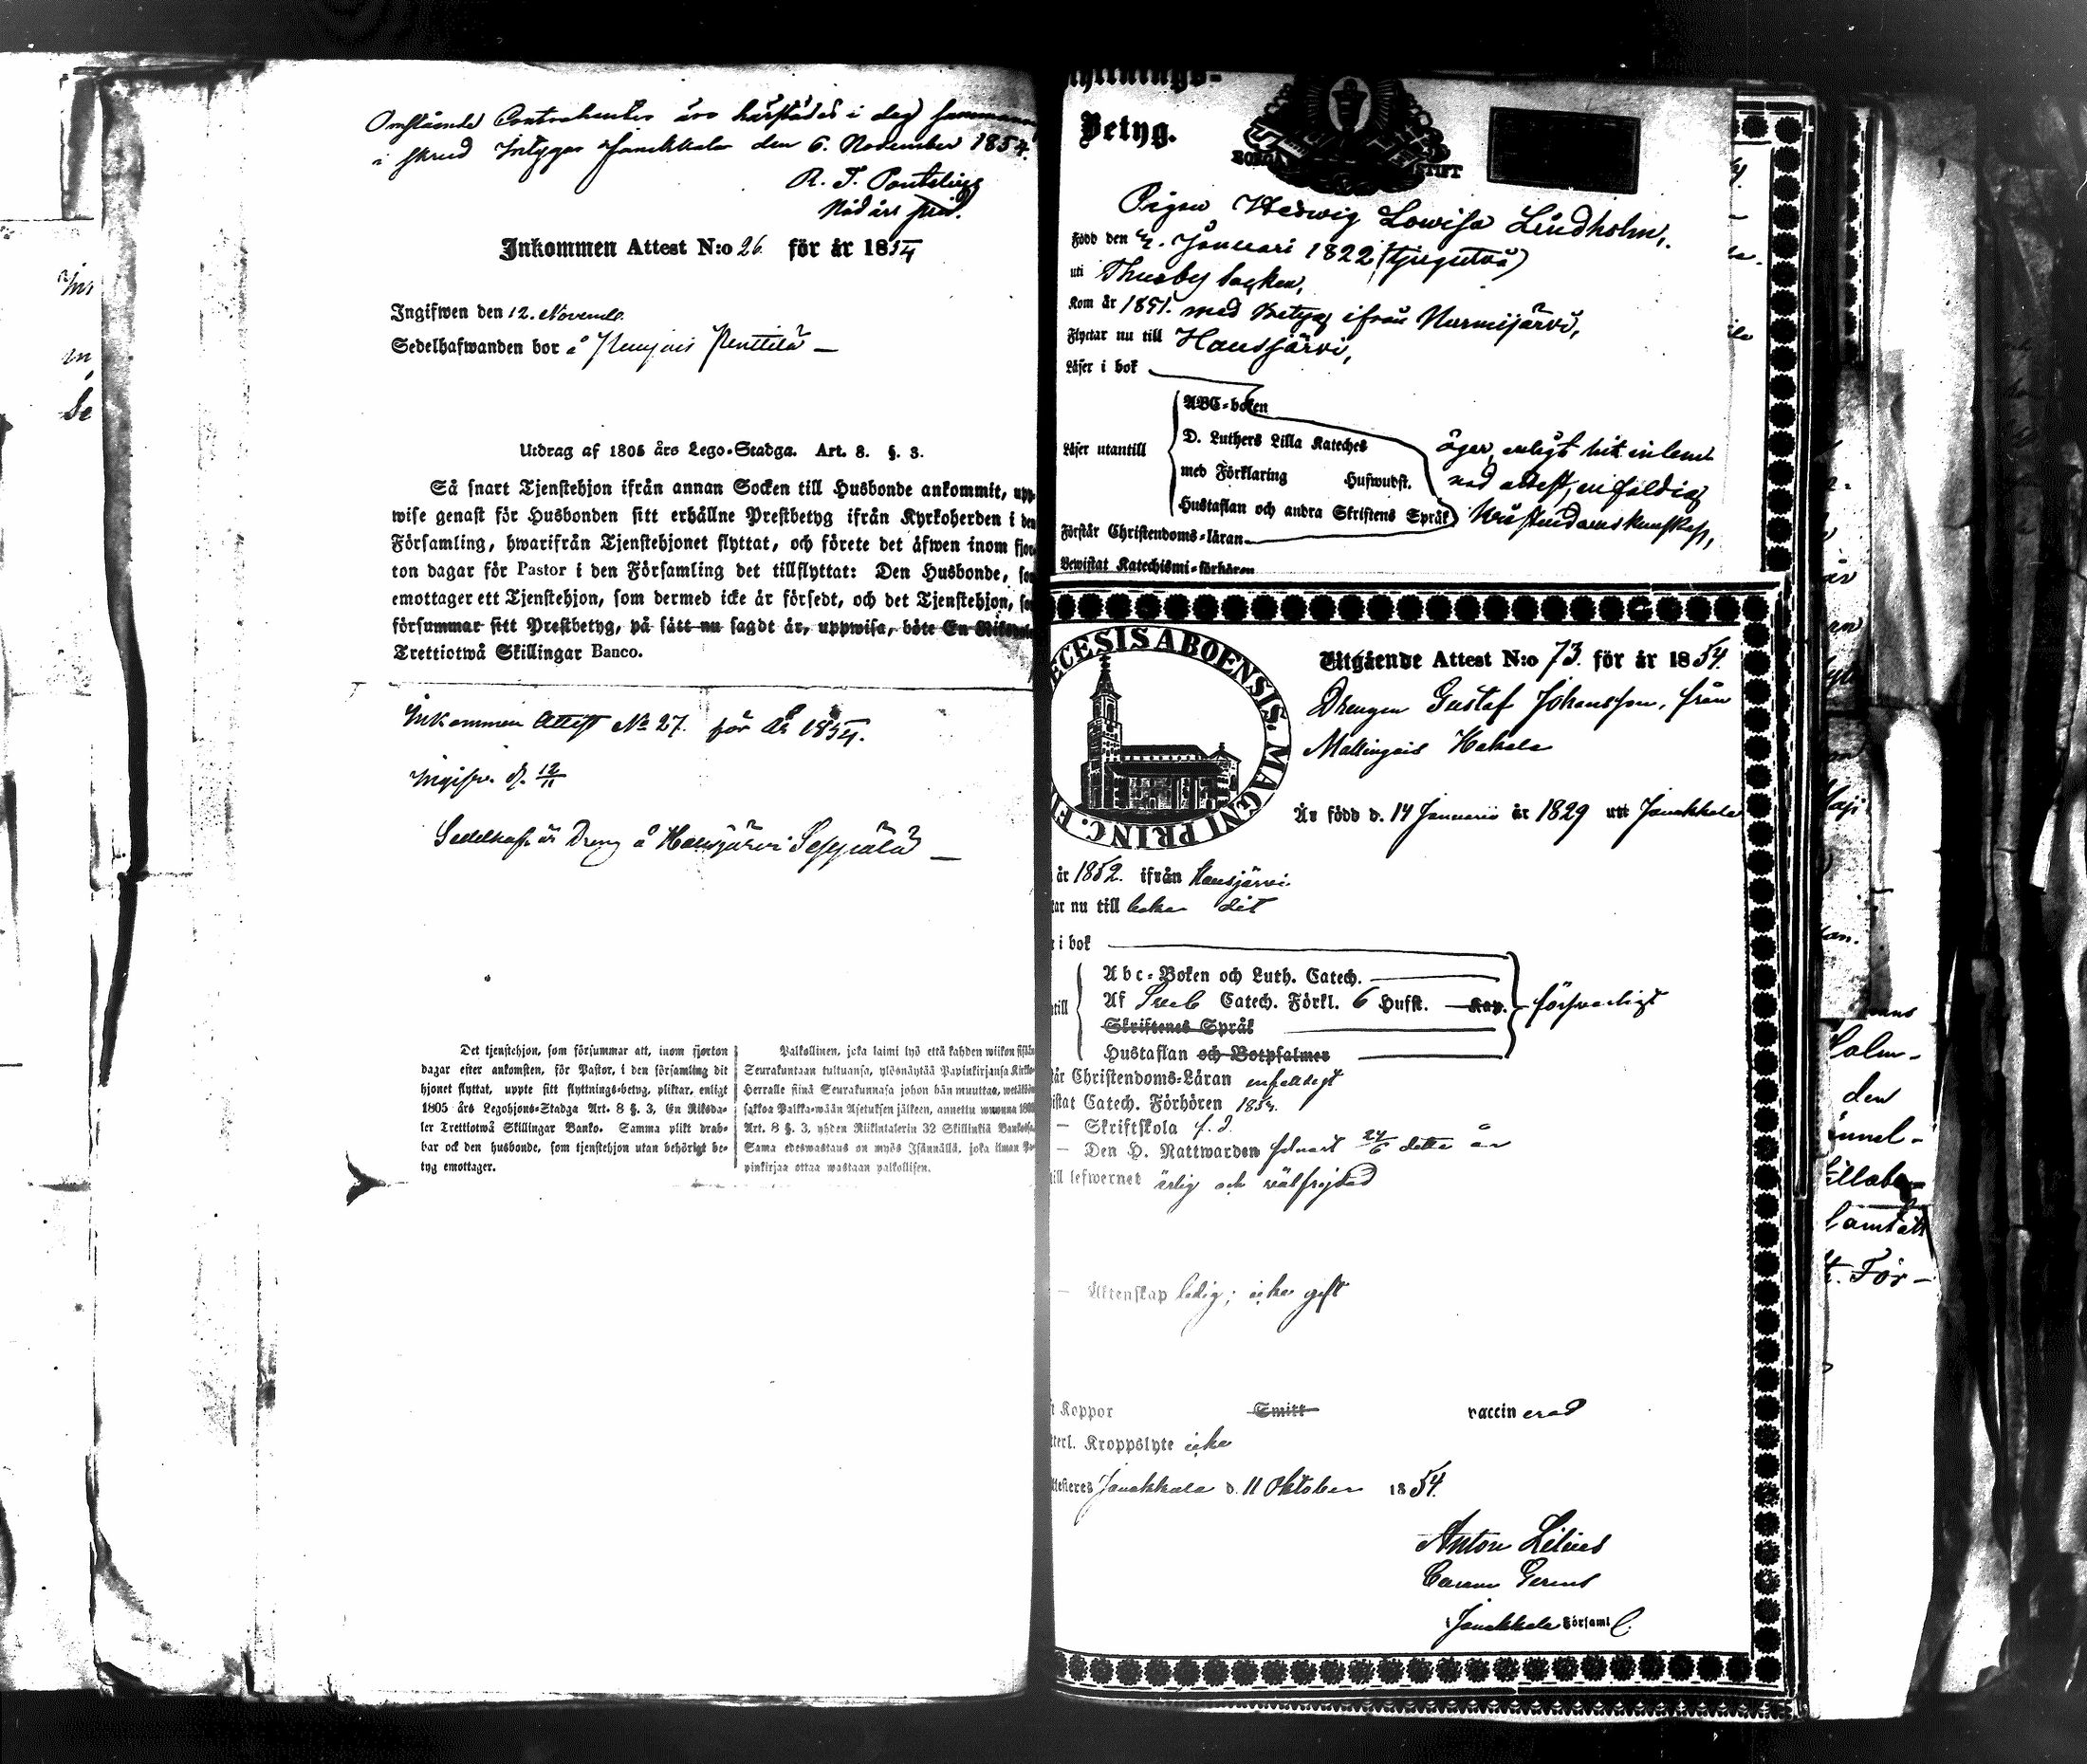 Omstående Contrahenter äro härstädes i dag sammanv
i skrud Intygar Janakkala den 6. November 1854.
R. T.
Nådårs pred.
Inkommen Attest N:o 26 för år 1854
Ingifwen den 12. Novemb.
Sedelhafwanden bor å Penttilä —
Utdrag af 1805 års Lego-Stadga. Art. 8. §. 3.
Så snart Tjenstehjon ifrån annan Socken till Husbonde ankommit, upp-
wise genast för Husbonden sitt erhållne Prestbetyg ifrån Kyrkoherden i den
Församling, hwarifrån Tjenstehjonet flyttat, och förete det äfwen inom fjor-
ton dagar för Pastor i den Församling det tillflyttat: Den Husbonde, som
emottager ett Tjenstehjon, som dermed icke är försedt, och det Tjenstehjon, som
försummar sitt Prestbetyg, på sätt nu sagdt är, uppwisa, böte En Riksdaler
Trettiotwå Skillingar Banco.
Inkommen Attest No 27. för År 1854.
Ingifv. d. 12/11
Sedelhaf. är Dreng å Hausjärvi Seppälä —
Det tjenstehjon, som försummar att, inom fjorton
dagar efter ankomsten, för Pastor, i den församling dit
hjonet flyttat, uppte sitt flyttnings-betyg, pliktar, enligt
1805 års Legohjons-Stadga Art. 8 §. 3, En Riksda-
ler Trettiotwå Skillingar Banko. Samma plikt drab-
bar ock den husbonde, som tjenstehjon utan behörigt be-
tyg emottager.
Palkollinen, joka laimi lyö että kahden wiikon sisään
Seurakuntaan tultuansa, ylösnäytää Papinkirjansa Kirkko-
Herralle siinä Seurakunnasa johon hän muuttaa, wetäköön
sakkoa Palkka-wään Asetuksen jälkeen, annettu wuonna 1805
Art. 8 §. 3, yhden Riikintalerin 32 Skillinkiä Bankossa.
Sama edeswastaus on myös Isännällä, joka ilman Pa-
pinkirjaa ottaa wastaan palkollisen.
Flyttnings-
Betyg.
BORGÅ STIFT
Pigan Hedwig Lowisa Lindholm,
Född den 2. Januari 1822 (tjugutvå)
uti Thusby socken,
Kom år 1851. med Betyg ifrån Nurmijärvi,
Flyttar nu till Hausjärvi,
Läser i bok
ABC-boken
Läser utantill D. Luthers Lilla Kateches
med Förklaring Hufwudst.
Hustaflan och andra Skriftens Språk
äger, enligt hit inlem-
nad attest, enfaldig
Kristendomskunskap,
Förstår Christendoms-läran
Bewistat Katechismi-förhören
ECESIS ABOENSIS. MAGNI PRINC. F
Utgående Attest N:o 73. för år 1854.
Drengen Gustaf Johansson, från
Mallinkais Hakala
Är född d. 14 Januarii år 1829 uti Janakkala
år 1852. ifrån Hausjärvi
tar nu till baka dit
e i bok
Abc-Boken och Luth. Catech.
ntill Af Sveb Catech. Förkl. 6 Hufst. Kap. försvarligt
Skriftenes Språk
Hustaflan och Botpsalmer
tår Christendoms-Läran enfaldigt
istat Catech. Förhören 1854.
— Skriftskola s. d.
— Den H. Nattwarden senast 24/6 detta år
till lefwernet ärlig och välfrejdad
— Äktenskap ledig; icke gift
t Koppor Smitt vaccinerad
tterl. Kroppslyte icke
ttesteres Janakkala d. 11 Oktober 1854.
Anton Lilius
i Janakkala Församl.